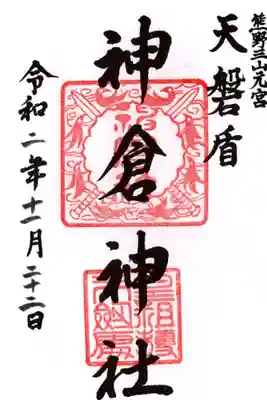 熊野三山元宮
天磐盾
神倉神社
令和二年十一月二十二日